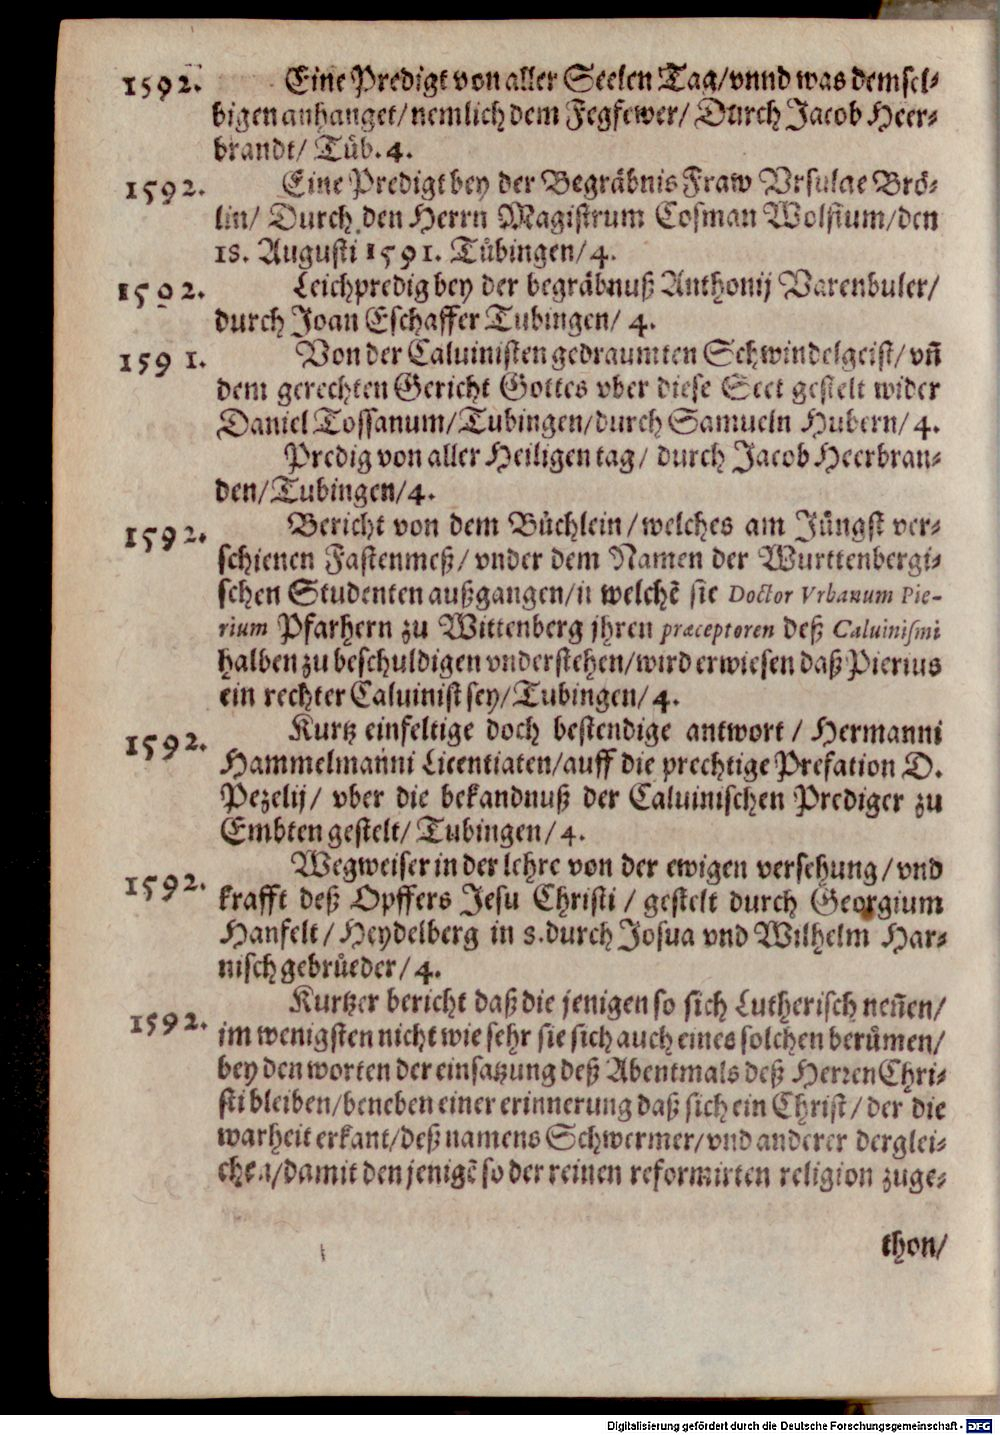 1592. Eine Predigt von aller Seelen Tag/vnnd was demsel-
bigen anhanget/nemlich dem Fegfewer/ Durch Jacob Heer-
brandt/ Tüb. 4.
1592. Eine Predigt bey der Begräbnis Fraw Vrsulae Brö-
lin/ Durch den Herrn Magistrum Cosman Wolfium/den
18. Augusti 1591. Tübingen/4.
1592. Leichpredig bey der begräbnuß Anthonij Varenbuler/
durch Joan Eschaffer Tubingen/ 4.
1591. Von der Caluinisten gedraumten Schwindelgeist/ vn̄
dem gerechten Gericht Gottes vber diese Sect gestelt wider
Daniel Tossanum/Tubingen/durch Samueln Hubern/ 4.
Predig von aller Heiligen tag/ durch Jacob Heerbran-
den/Tubingen/4.
1592. Bericht von dem Büchlein/welches am Jüngst ver-
schienen Fastenmeß/ vnder dem Namen der Wurttenbergi-
schen Studenten außgangen/ in welchē sie Doctor Vrbanum Pie-
rium Pfarhern zu Wittenberg jhren præceptoren deß Caluinismi
halben zu beschuldigen vnderstehen/wird erwiesen daß Pierius
ein rechter Caluinist sey/Tubingen/4.
1592. Kurtz einfeltige doch bestendige antwort / Hermanni
Hammelmanni Licentiaten/auff die prechtige Prefation D.
Pezelij/ vber die bekandnuß der Caluinischen Prediger zu
Embten gestelt/ Tubingen/4.
1592. Wegweiser in der lehre von der ewigen versehung/vnd
krafft deß Opffers Jesu Christi / gestelt durch Georgium
Hanfelt/ Heydelberg in 8. durch Josua vnd Wilhelm Har-
nisch gebrüeder/4.
1592. Kurtzer bericht daß die jenigen so sich Lutherisch nen̄en/
im wenigsten nicht wie sehr sie sich auch eines solchen berümen/
bey den worten der einsatzung deß Abentmals deß Herren Chri-
sti bleiben/beneben einer erinnerung daß sich ein Christ/ der die
warheit erkant/deß namens Schwermer/vnd anderer derglei-
chen/damit den jenigē so der reinen reformirten religion zuge-
thon/
Digitalisierung gefördert durch die Deutsche Forschungsgemeinschaft - DFG